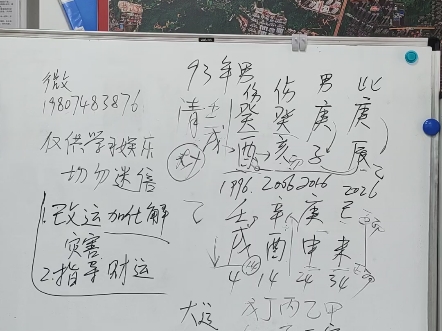 微
19807483876
仅供学习娱乐
切勿迷信
1.改运加化解
灾害
2.指导财运
93年男
伤 伤 男 比
清 癸 癸 庚 庚
戌 酉 亥 子 辰
1996 2006 2016 2026
壬 辛 庚 己
戌 酉 申 未
4 14 24 34
大运 戊丁丙乙甲